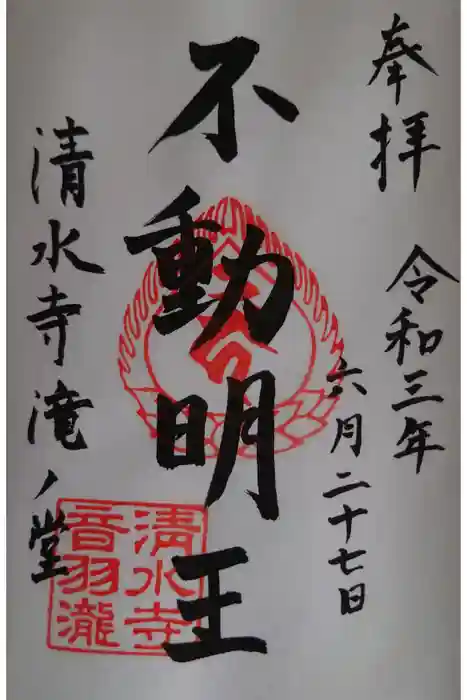 奉拝
令和三年
六月二十七日
不動明王
清水寺滝ノ堂
清水寺
音羽瀧